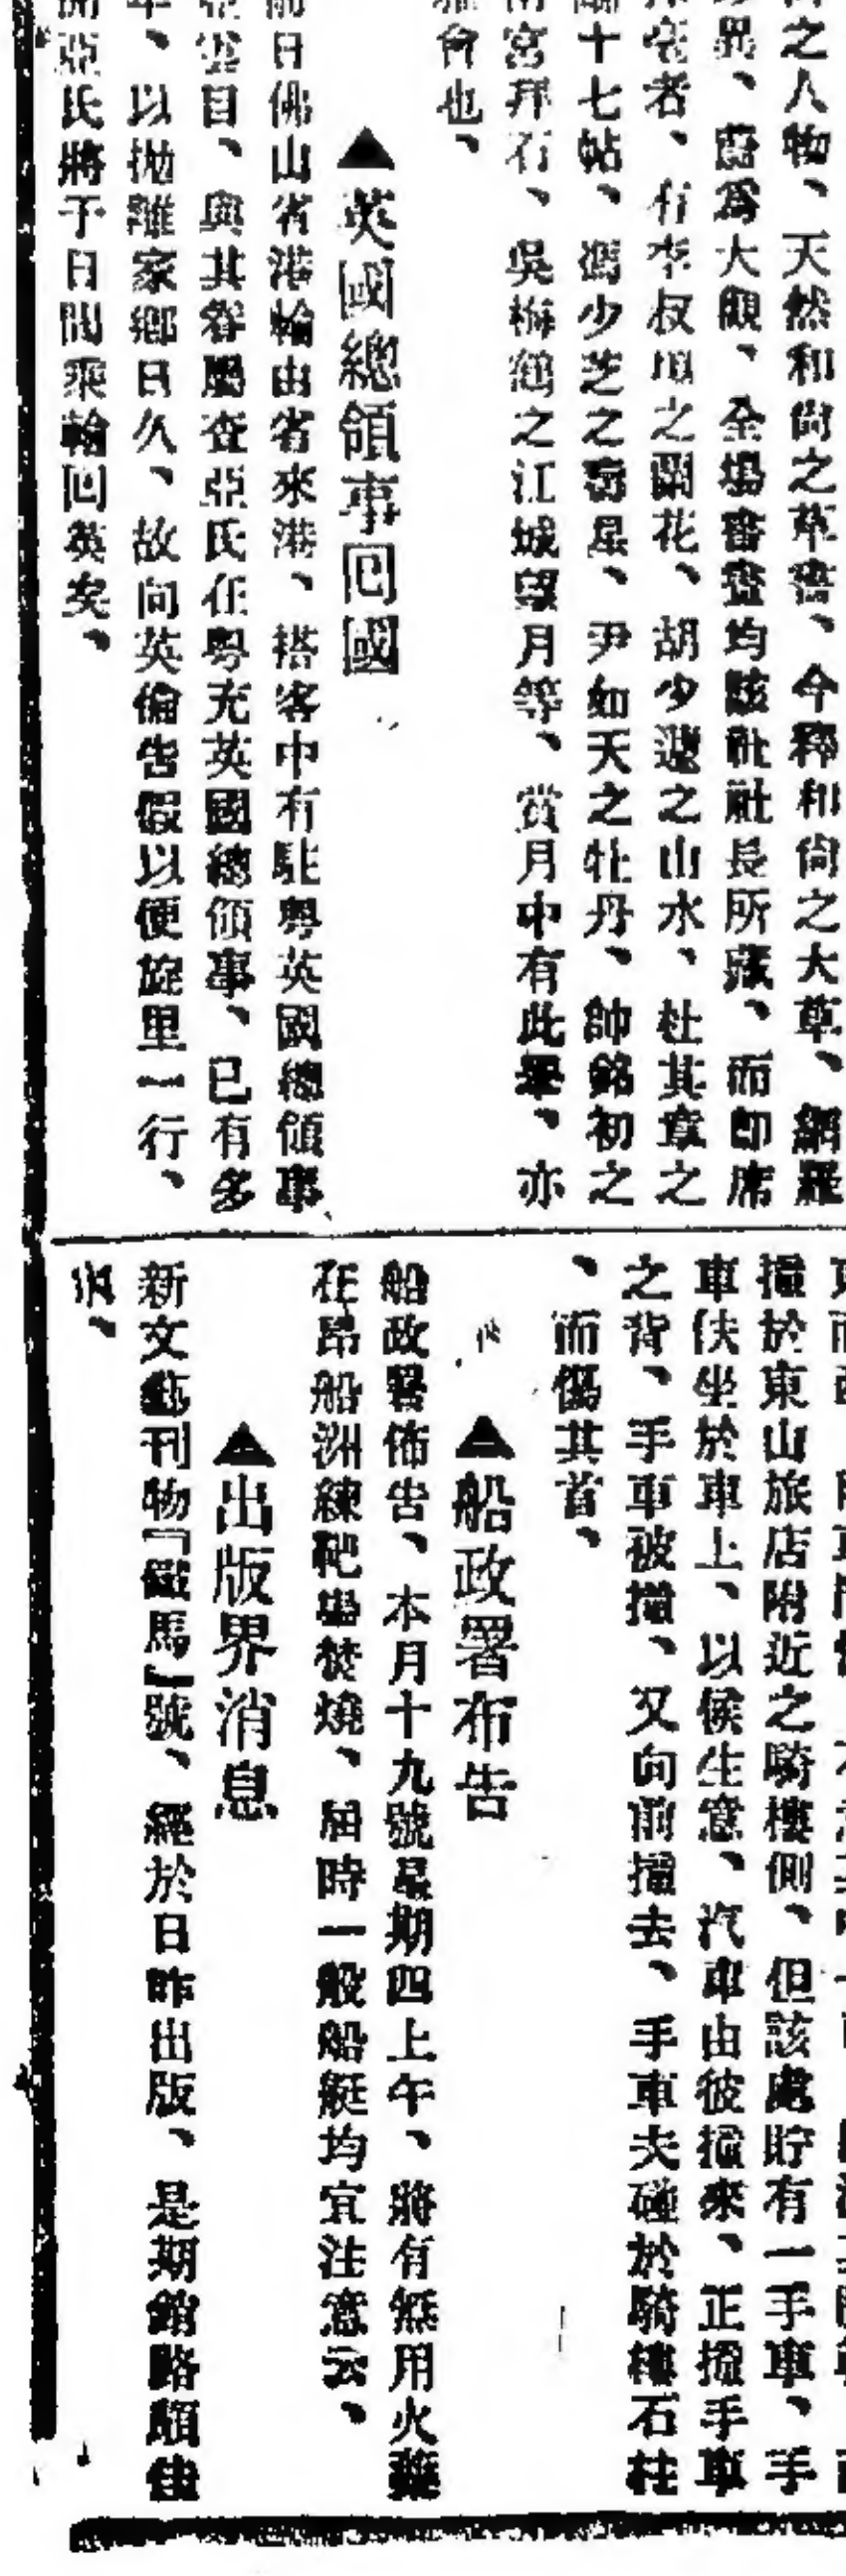 之人物、天然和尙之草書、今釋和尙之大草、網羅
異、蔚爲大觀、全塲書畫均該社社長所藏、而卽席
毫者、有李叔川之蘭花、胡少蘧之山水、杜其章之
十七帖、馮少芝之壽星、尹如天之牡丹、帥銘初之
宮拜石、吳梅鶴之江城望月等、賞月中有此舉、亦
會也、
▲英國總領事囘國
日佛山省港輪由省來港、搭客中有駐粤英國總領事
目、與其眷屬查亞氏在粤充英國總領事、已有多
年、以拋離家鄉日久、故向英倫告假以便旋里一行、
亞氏將于日間乘輪回英矣、
撞於東山旅店附近之騎樓側、但該處貯有一手車、手
車伕坐於車上、以候生意、汽車由彼撞來、正撞手車
之背、手車被撞、又向前撞去、手車夫碰於騎樓石柱
、而傷其首、
▲船政署布告
船政署佈告、本月十九號星期四上午、將有無用火藥
在昂船洲練靶塲焚燒、屆時一般船艇均宜注意云、
▲出版界消息
新文藝刊物『鐵馬』號、經於日昨出版、是期銷路頗佳